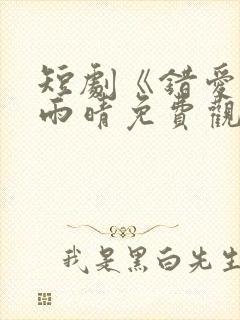 短劇《錯愛
雨晴免費觀
我是黑白先生